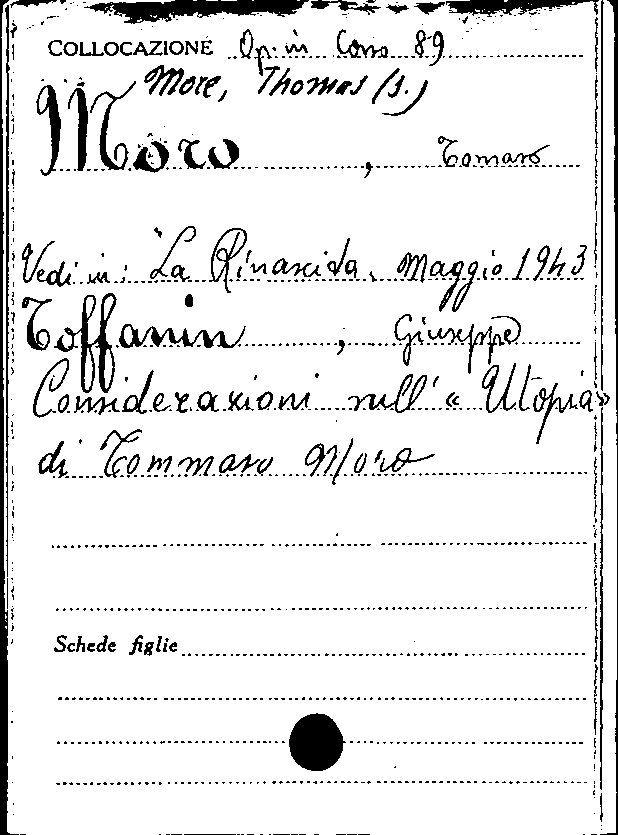 COLLOCAZIONE Op. in Corso 89
More, Thomas (s.)
Moro, Tomaso
Vedi in: La Rinascita, Maggio 1943
Toffanin, Giuseppe
Considerazioni sull' « Utopia »
di Tommaso Moro
Schede figlie